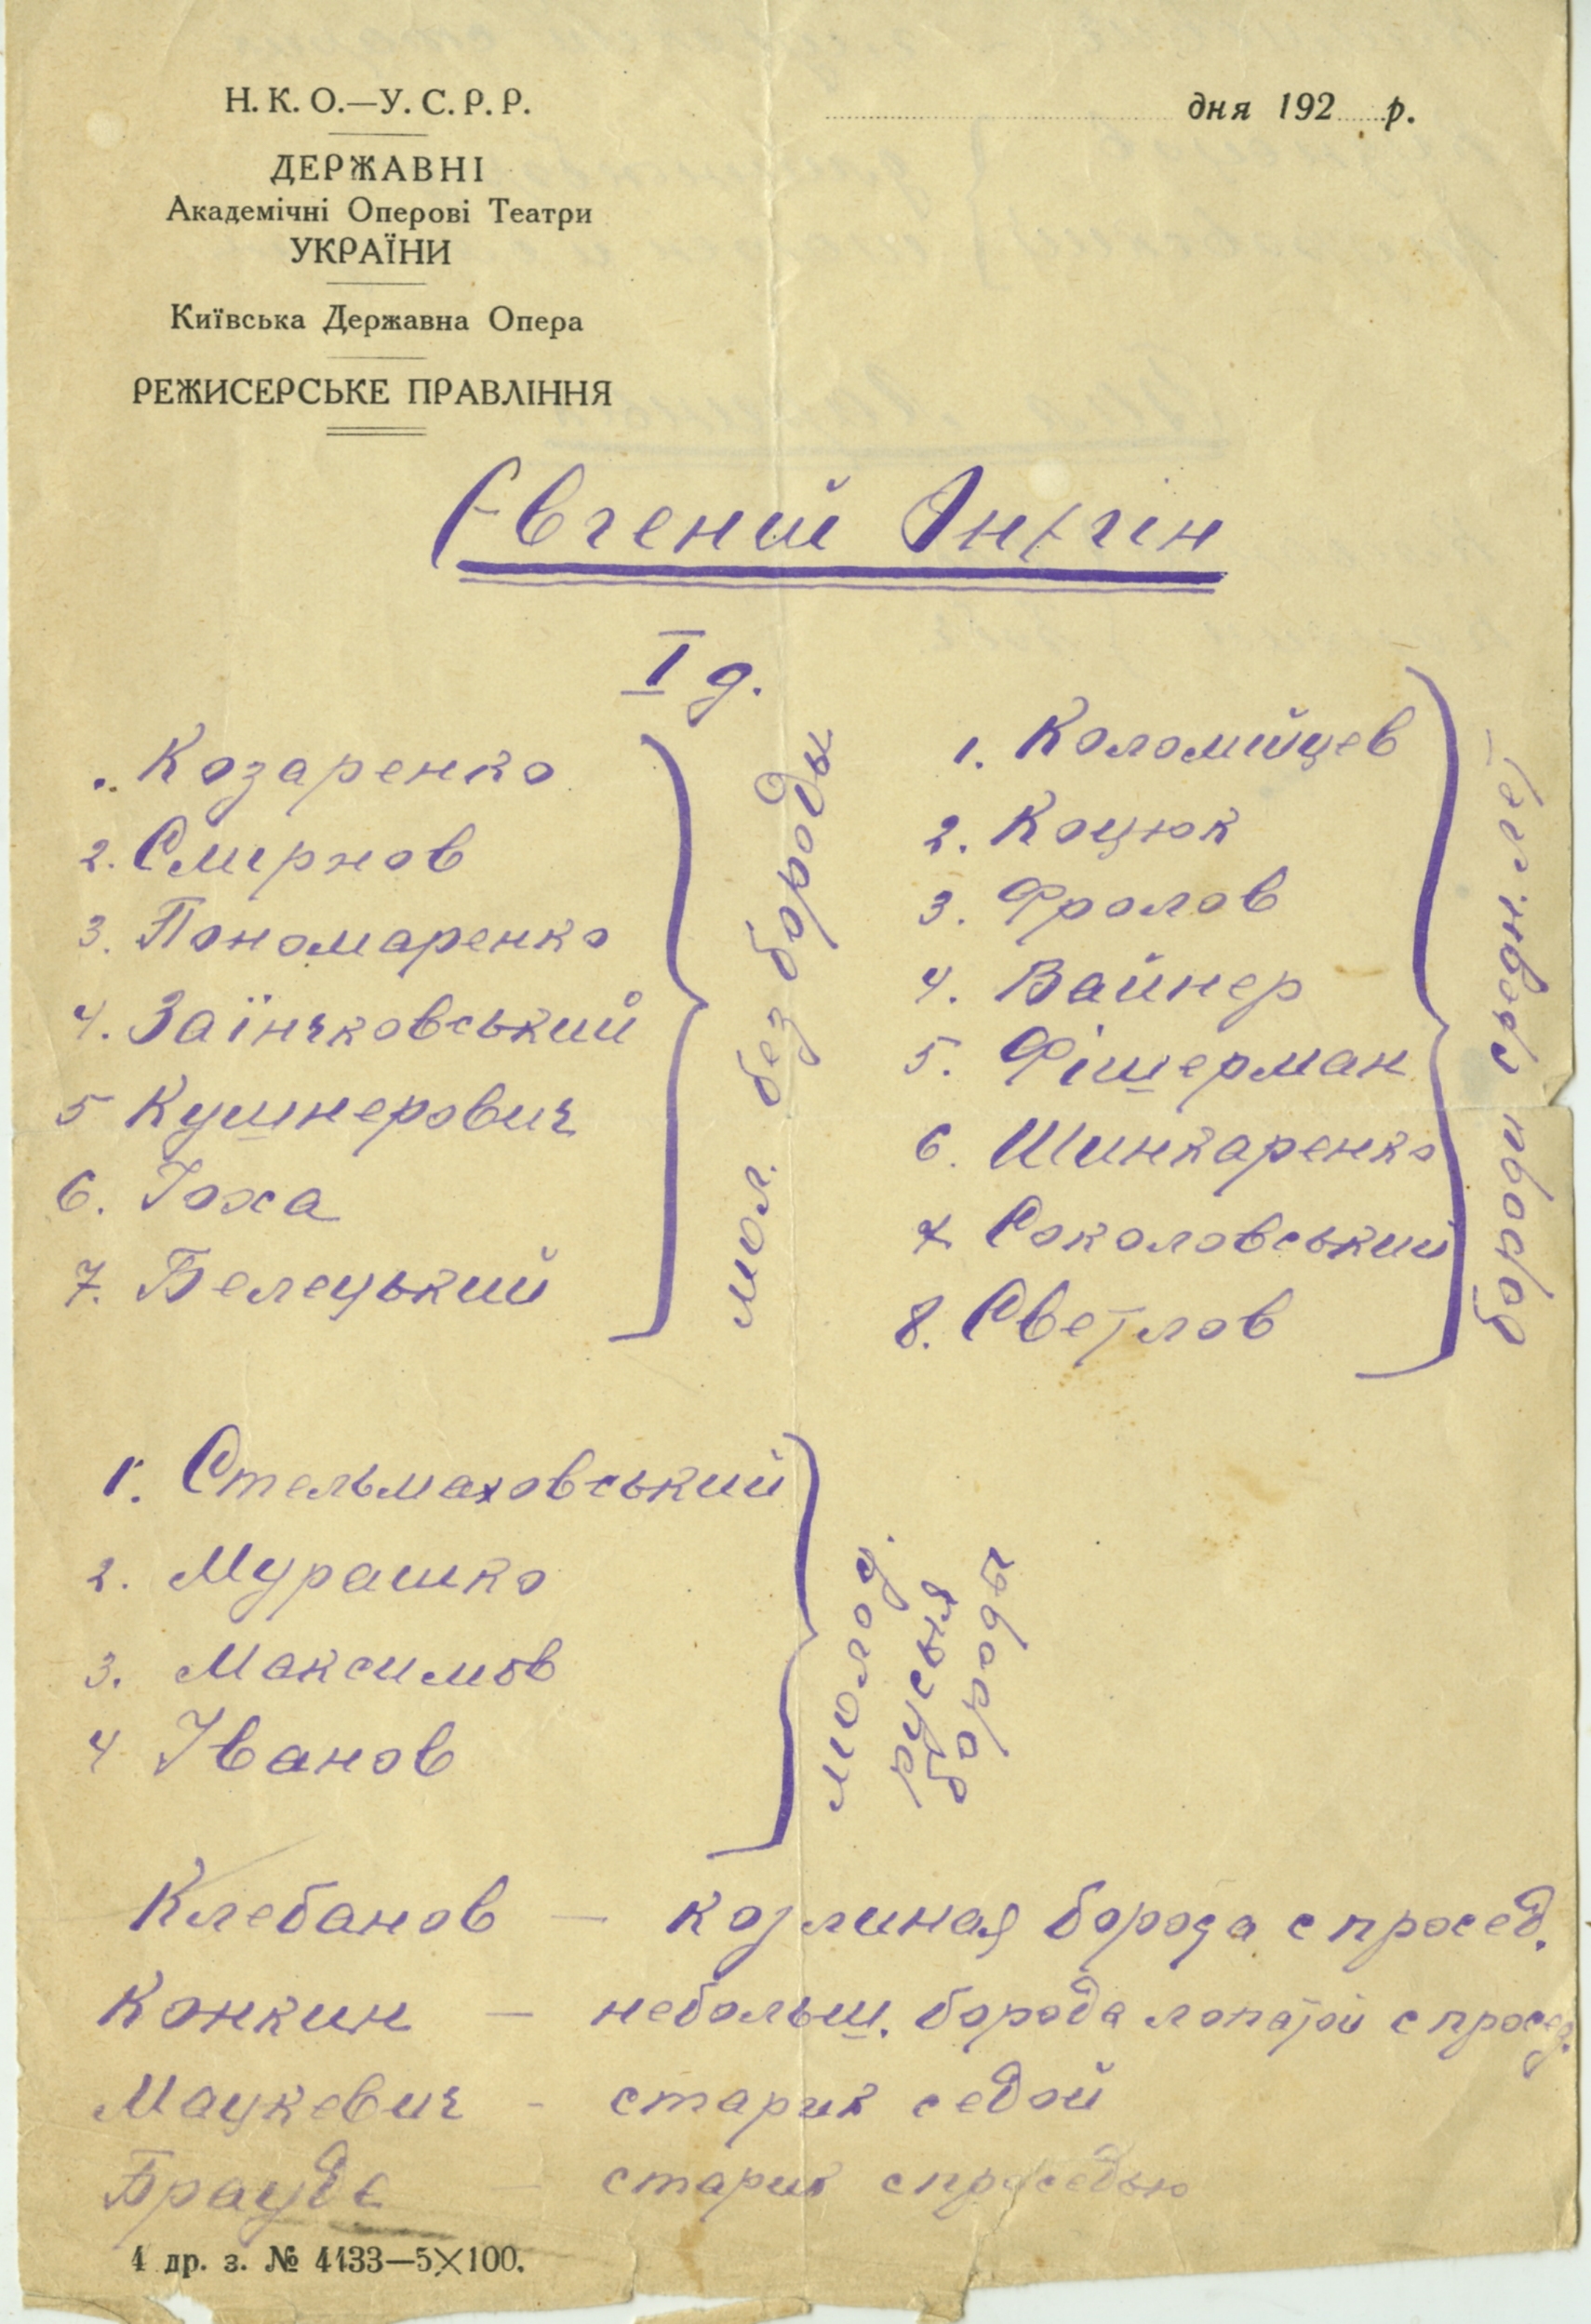 Н. К. О.—У. С. Р. Р.
дня 192 р.
ДЕРЖАВНІ
Академічні Оперові Театри
УКРАЇНИ
Київська Державна Опера
РЕЖИСЕРСЬКЕ ПРАВЛІННЯ
Євгеній Онєгін
I д.
. Козаренко
2. Смирнов
3. Пономаренко
4. Заїнчковський
5 Кушнерович
6. Їоха
7. Белецький
мол. без бороды
1. Коломийцев
2. Коцюк
3. Фролов
4. Вайнер
5. Фішерман
6. Шинкаренко
7 Соколовський
8. Светлов
бороди средн. лет
1. Стельмаховський
2. Мурашко
3. Максимов
4 Іванов
молод.
русыя
бороды
Клебанов — козлиная борода с просед.
Конкин — небольш. борода лопатой с просед.
Мацкевич - старик седой
Брауде - старик с проседью
4 др. з. № 4133—5X100.